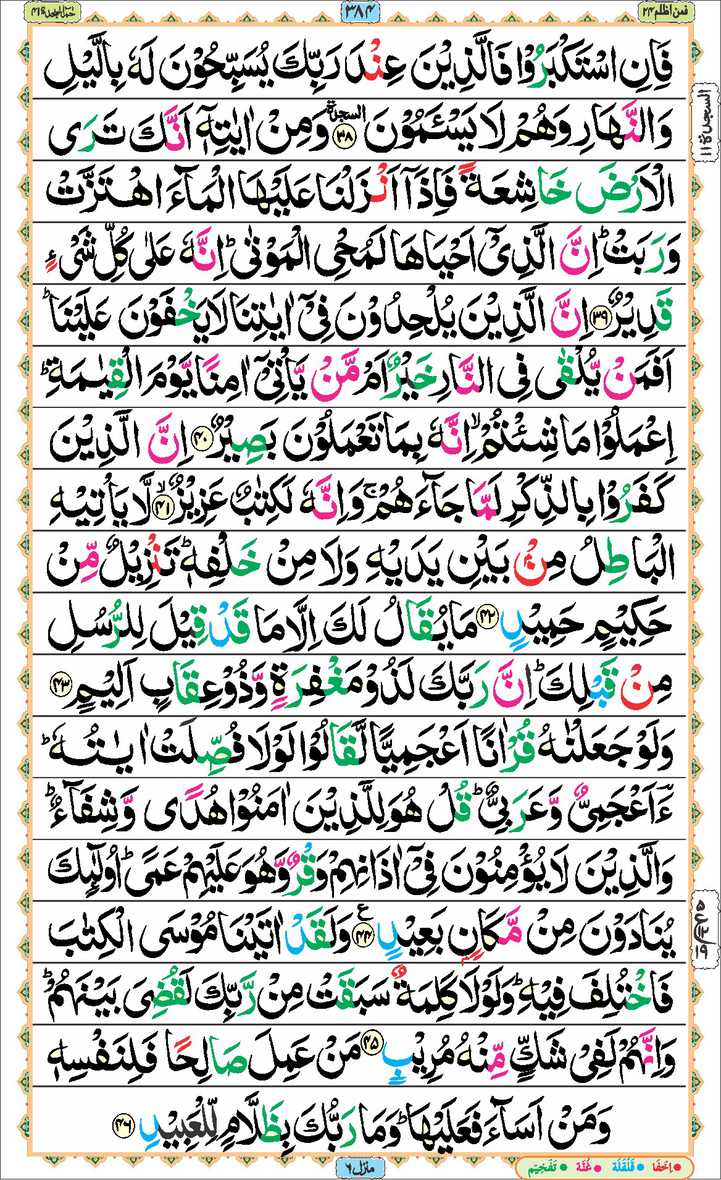 فمن اظلم ۲۴
۳۸۴
حٰمٓ السجدة ۴۱
فَاِنِ اسْتَكْبَرُوْا فَالَّذِيْنَ عِنْدَ رَبِّكَ يُسَبِّحُوْنَ لَهٗ بِالَّيْلِ
وَالنَّهَارِ وَهُمْ لَا يَسْـَٔمُوْنَ السجدة ۳۸ وَمِنْ اٰيٰتِهٖۤ اَنَّكَ تَرَى
السجدة ۱۱
الْاَرْضَ خَاشِعَةً فَاِذَاۤ اَنْزَلْنَا عَلَيْهَا الْمَآءَ اهْتَزَّتْ
وَرَبَتْؕ اِنَّ الَّذِيْۤ اَحْيَاهَا لَمُحْيِ الْمَوْتٰىؕ اِنَّهٗ عَلٰى كُلِّ شَيْءٍ
قَدِيْرٌ ۳۹ اِنَّ الَّذِيْنَ يُلْحِدُوْنَ فِيْۤ اٰيٰتِنَا لَا يَخْفَوْنَ عَلَيْنَاؕ
اَفَمَنْ يُّلْقٰى فِى النَّارِ خَيْرٌ اَمْ مَّنْ يَّاْتِيْۤ اٰمِنًا يَّوْمَ الْقِيٰمَةِؕ
اِعْمَلُوْا مَا شِئْتُمْۙ اِنَّهٗ بِمَا تَعْمَلُوْنَ بَصِيْرٌ ۴۰ اِنَّ الَّذِيْنَ
كَفَرُوْا بِالذِّكْرِ لَمَّا جَآءَهُمْۚ وَاِنَّهٗ لَكِتٰبٌ عَزِيْزٌۙ ۴۱ لَّا يَاْتِيْهِ
الْبَاطِلُ مِنْۢ بَيْنِ يَدَيْهِ وَلَا مِنْ خَلْفِهٖؕ تَنْزِيْلٌ مِّنْ
حَكِيْمٍ حَمِيْدٍ ۴۲ مَا يُقَالُ لَكَ اِلَّا مَا قَدْ قِيْلَ لِلرُّسُلِ
مِنْ قَبْلِكَؕ اِنَّ رَبَّكَ لَذُوْ مَغْفِرَةٍ وَّذُوْ عِقَابٍ اَلِيْمٍ ۴۳
وَلَوْ جَعَلْنٰهُ قُرْاٰنًا اَعْجَمِيًّا لَّقَالُوْا لَوْلَا فُصِّلَتْ اٰيٰتُهٗؕ
ءَؔاَعْجَمِيٌّ وَّعَرَبِيٌّؕ قُلْ هُوَ لِلَّذِيْنَ اٰمَنُوْا هُدًى وَّشِفَآءٌؕ
وَالَّذِيْنَ لَا يُؤْمِنُوْنَ فِيْۤ اٰذَانِهِمْ وَقْرٌ وَّهُوَ عَلَيْهِمْ عَمًىؕ اُولٰٓئِكَ
يُنَادَوْنَ مِنْ مَّكَانٍۭ بَعِيْدٍ ع ۴۴ وَلَقَدْ اٰتَيْنَا مُوْسَى الْكِتٰبَ
فَاخْتُلِفَ فِيْهِؕ وَلَوْلَا كَلِمَةٌ سَبَقَتْ مِنْ رَّبِّكَ لَقُضِيَ بَيْنَهُمْؕ
وَاِنَّهُمْ لَفِيْ شَكٍّ مِّنْهُ مُرِيْبٍ ۴۵ مَنْ عَمِلَ صَالِحًا فَلِنَفْسِهٖ
وَمَنْ اَسَآءَ فَعَلَيْهَاؕ وَمَا رَبُّكَ بِظَلَّامٍ لِّلْعَبِيْدِ ۴۶
منزل ۶
اِخفَا قَلْقَلَة غُنَّة تَفْخِيْم